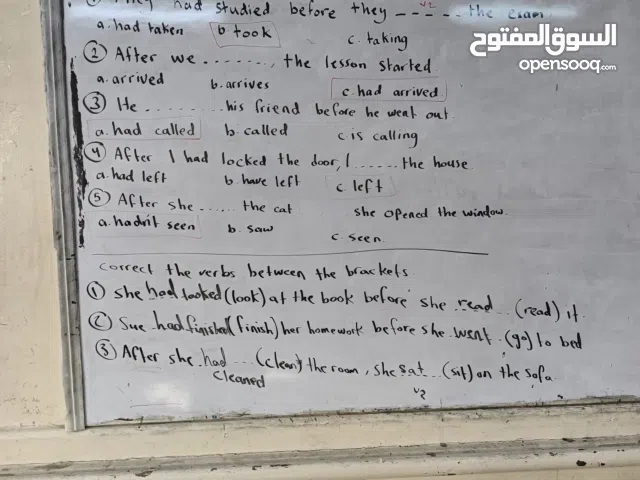 They had studied before they ------ the exam
v2
a. had taken b took c. taking
السوق المفتوح
opensooq.com
② After we ........, the lesson started
a. arrived b. arrives c. had arrived
③ He .......... his friend before he went out.
a. had called b. called c. is calling
④ After I had locked the door, I ...... the house
a. had left b. have left c. left
⑤ After she ...... the cat she opened the window.
a. hadn't seen b. saw c. seen
correct the verbs between the brackets
① She had looked (look) at the book before she read... (read) it.
② Sue had finished (finish) her homework before she went. (go) to bed
③ After she had .... (clean) the room, she sat... (sit) on the sofa
cleaned
v2